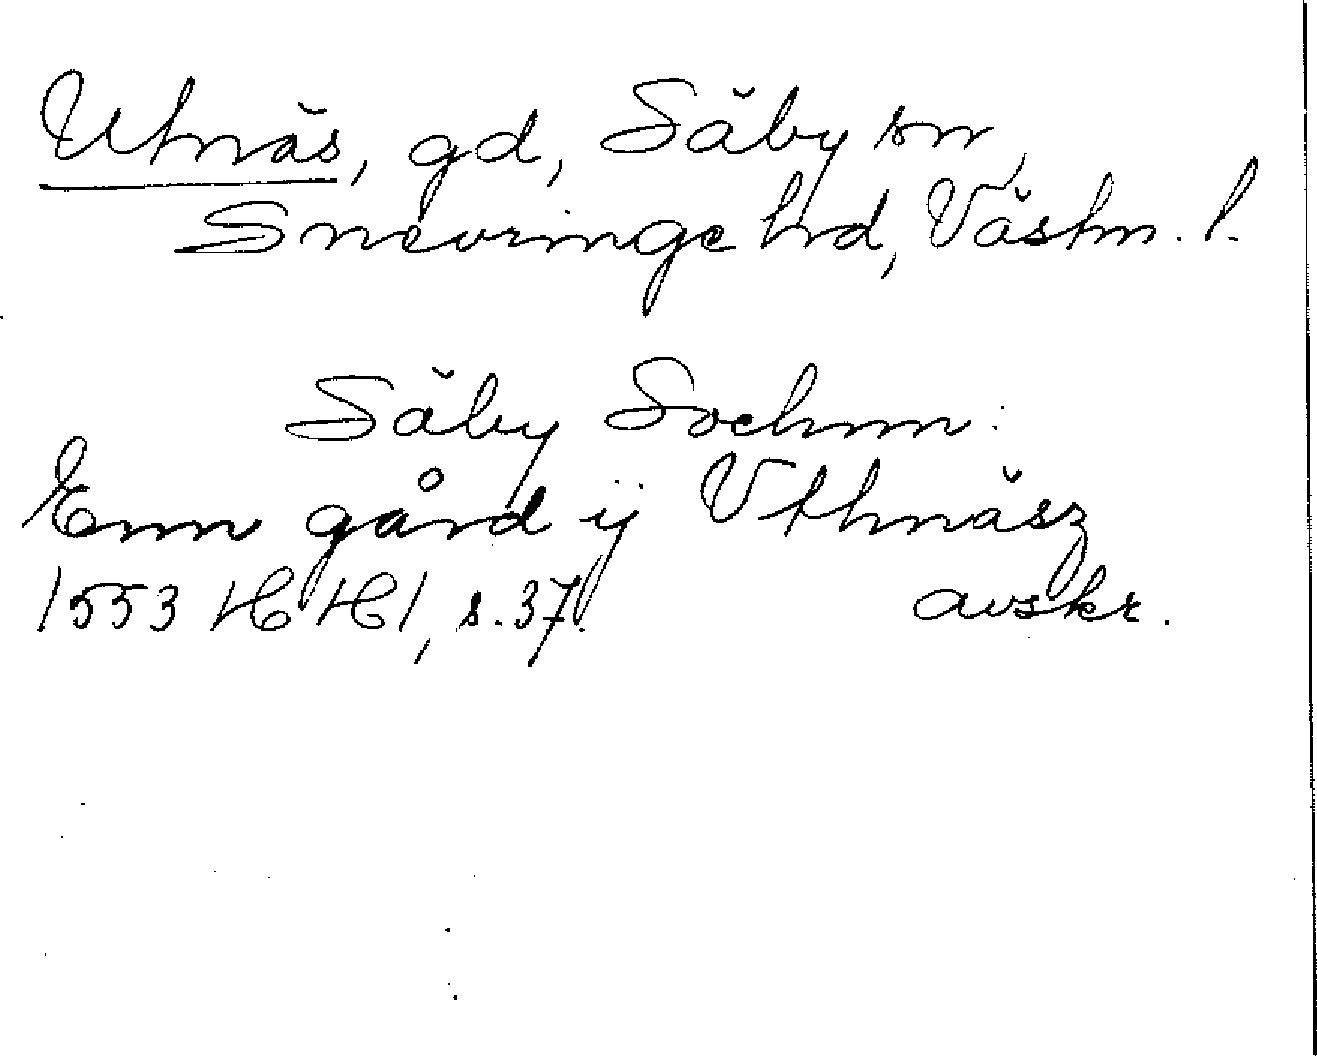 Utnäs, gd, Säby sn,
Snevringe hd, Västm. l.
Säby Sochnn:
Enn gård ÿ Vthnäsz
1553 HH 1, s. 37. avskr.